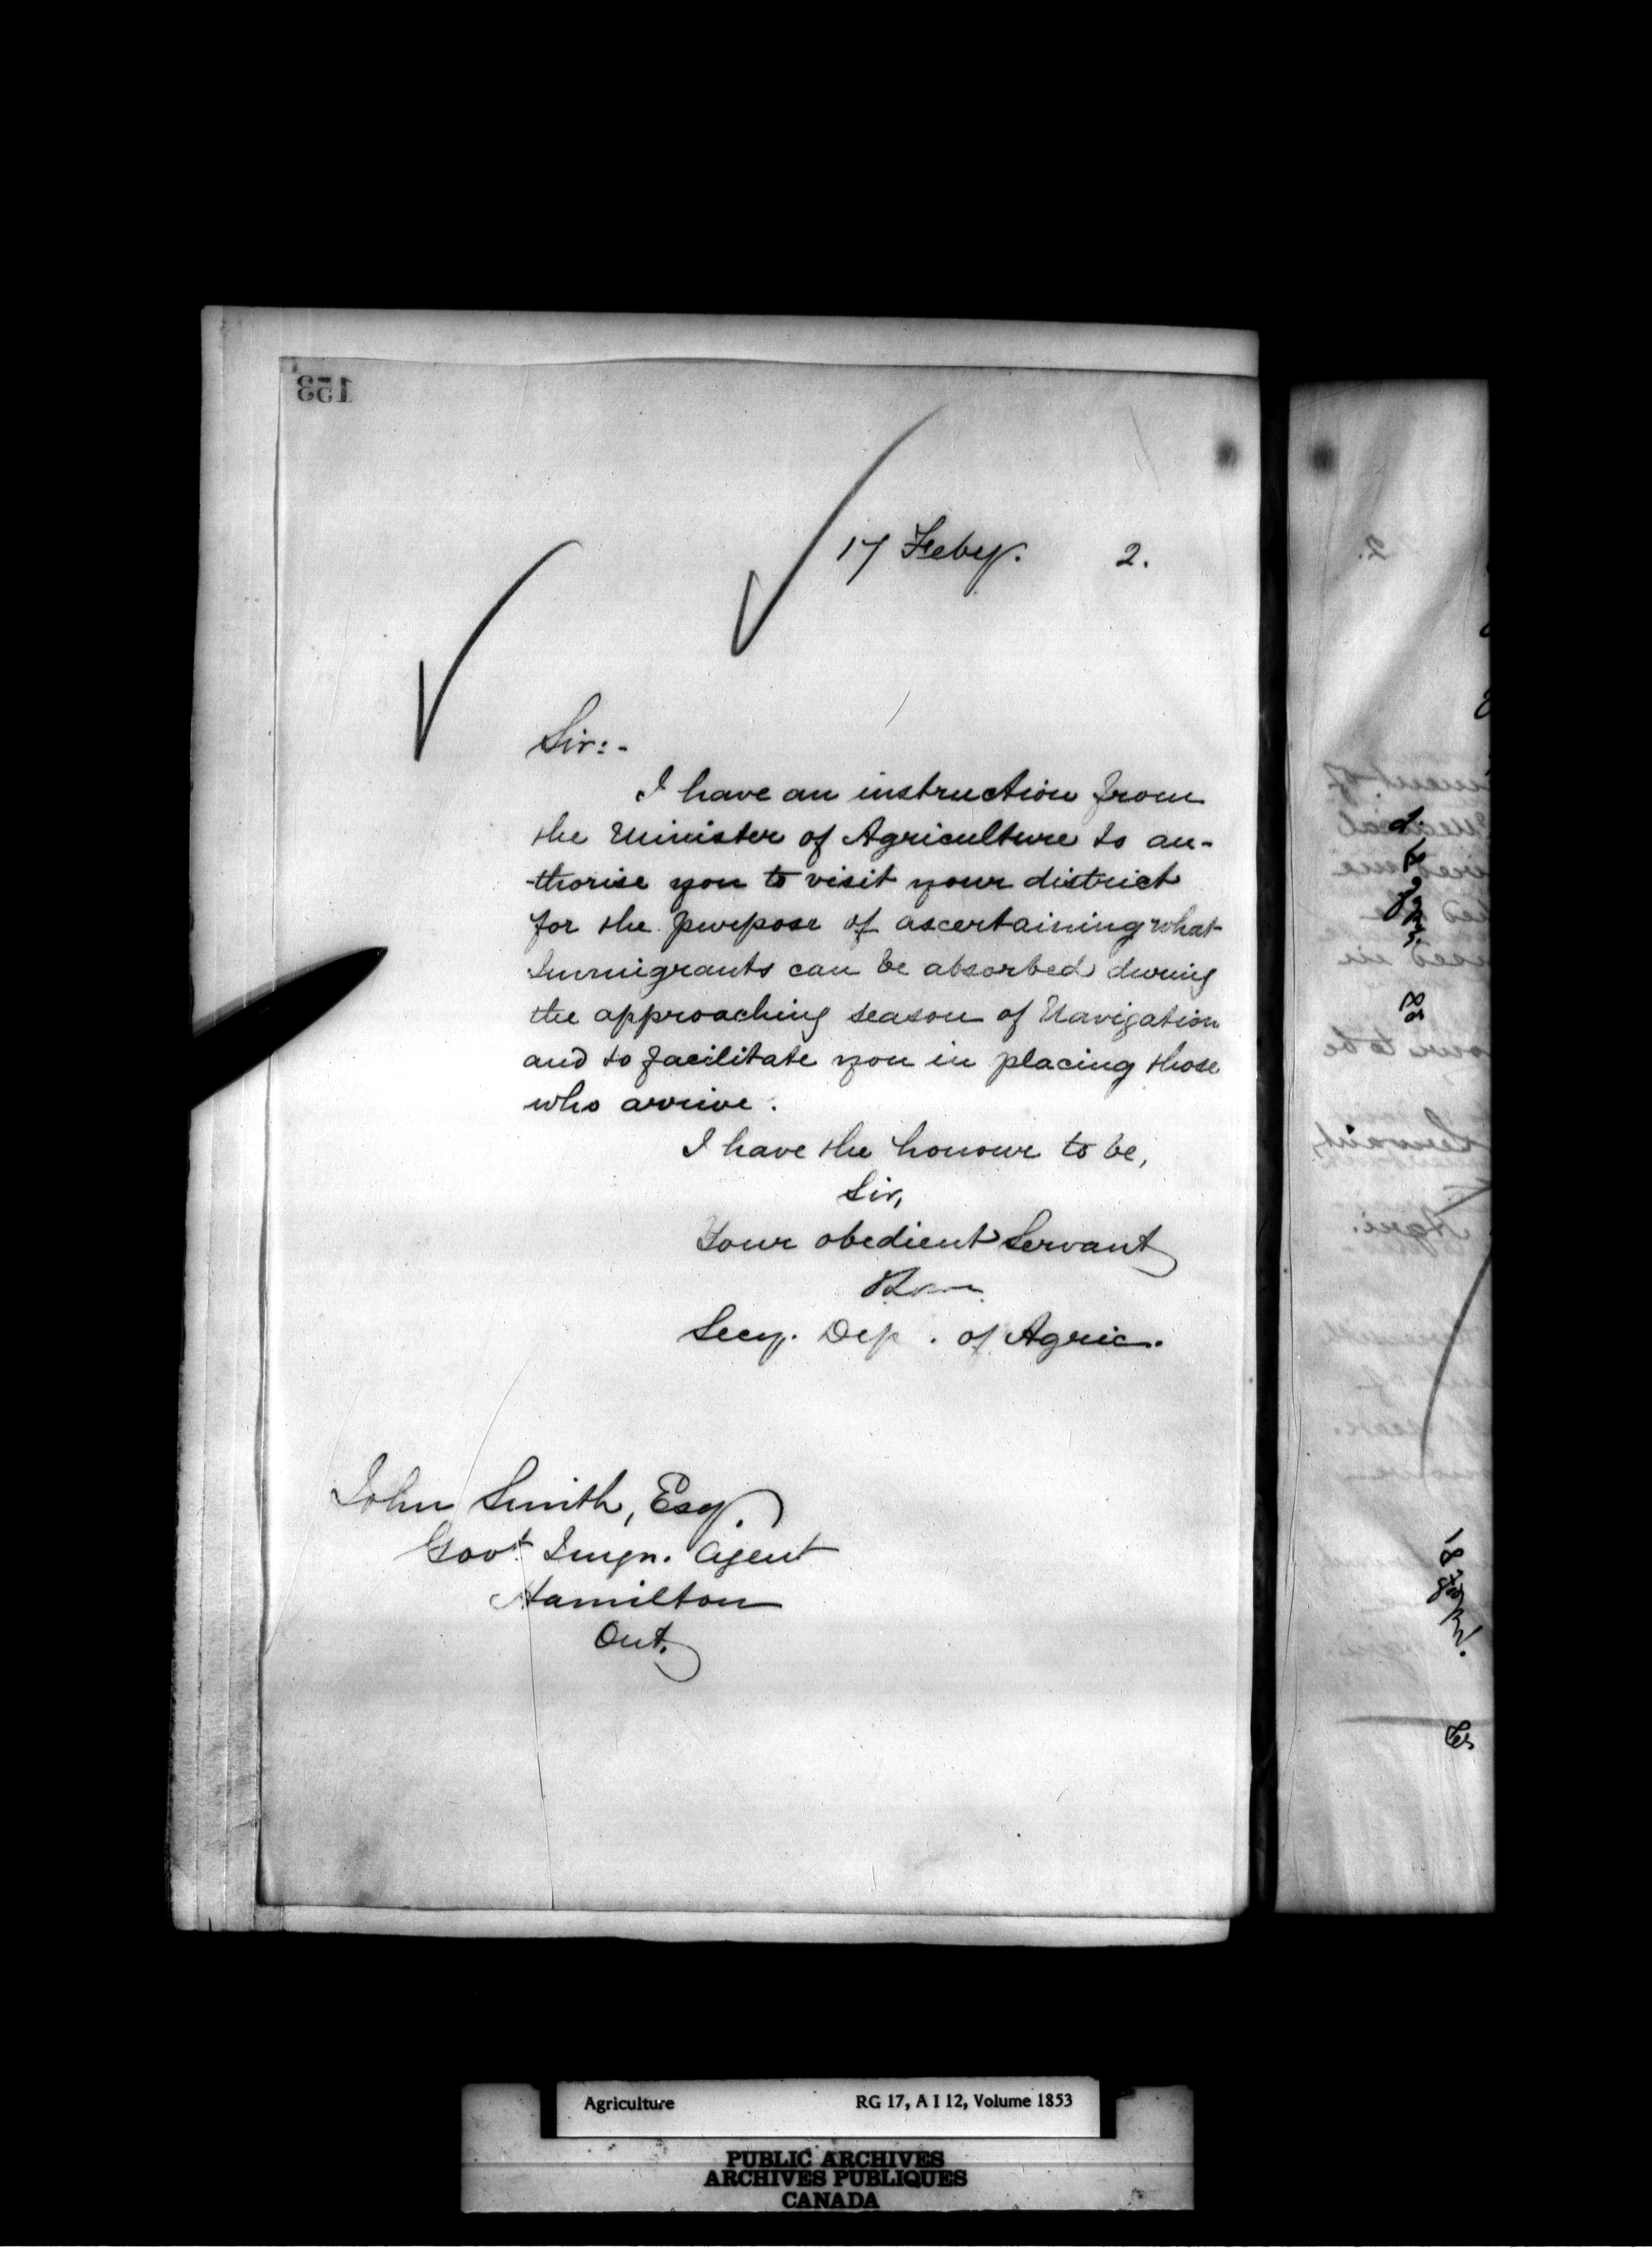 153
17 Feby. 2.
Sir:-
I have an instruction from
the Minister of Agriculture to au-
-thorise you to visit your district
for the purpose of ascertaining what
Immigrants can be absorbed during
the approaching season of Navigation
and to facilitate you in placing those
who arrive.
I have the honour to be,
Sir,
Your obedient Servant
Secy. Dep . of Agric.
John Smith, Esq.
Govt Imgn. Agent
Hamilton
Ont.
Agriculture RG 17, A I 12, Volume 1853
PUBLIC ARCHIVES
ARCHIVES PUBLIQUES
CANADA